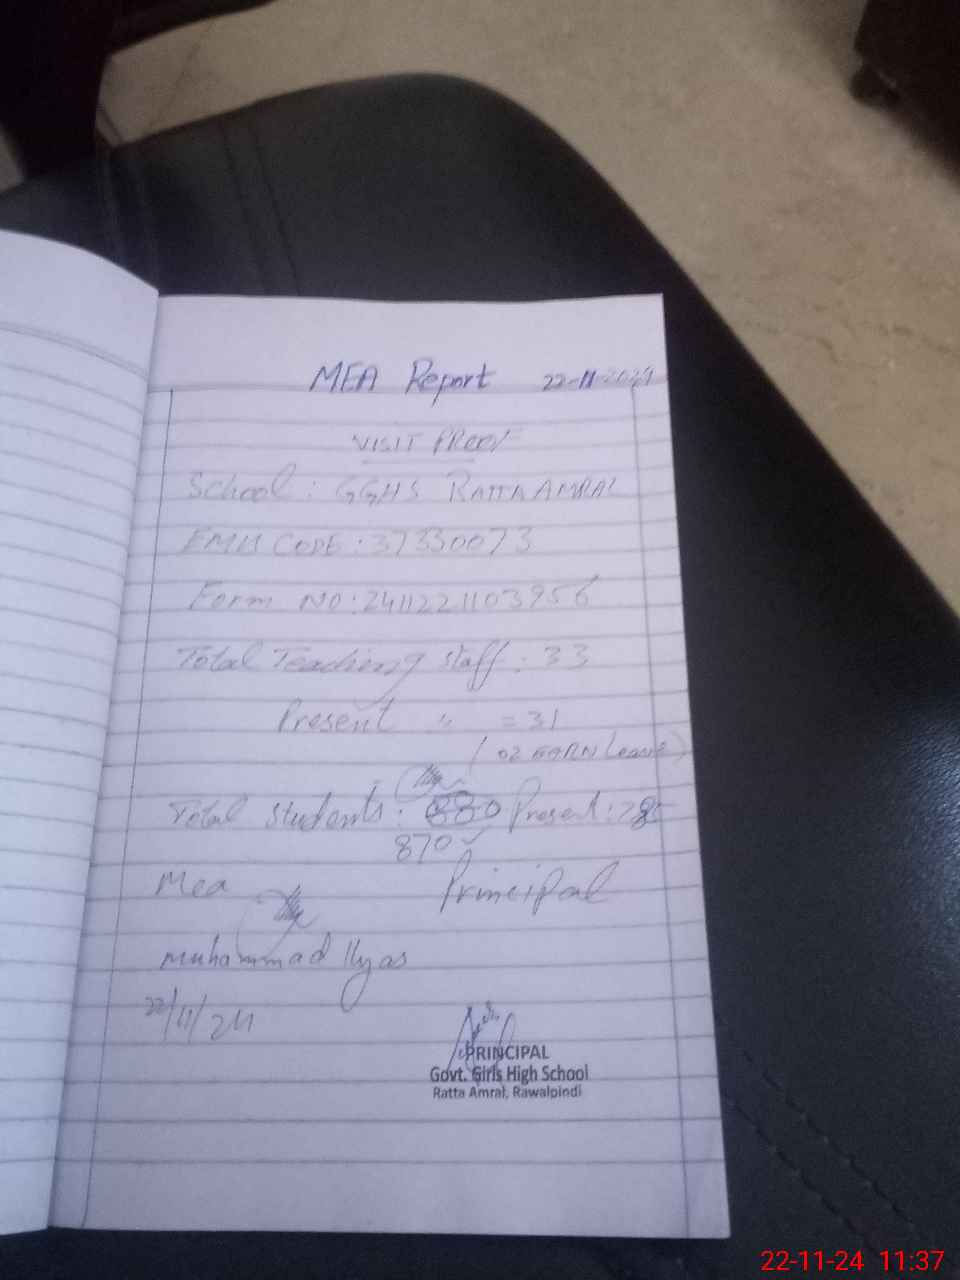 MEA Report 22-11-2024
VISIT PROOF
School: GGHS RATTA AMRAL
EMIS CODE: 37330073
Form NO: 2411221103956
Total Teaching staff: 33
Present " = 31
(02 EARN Leave)
Total students: 880 Present:
870
Mea Principal
Muhammad Ilyas
22/11/24
PRINCIPAL
Govt. Girls High School
Ratta Amral, Rawalpindi
22-11-24 11:37